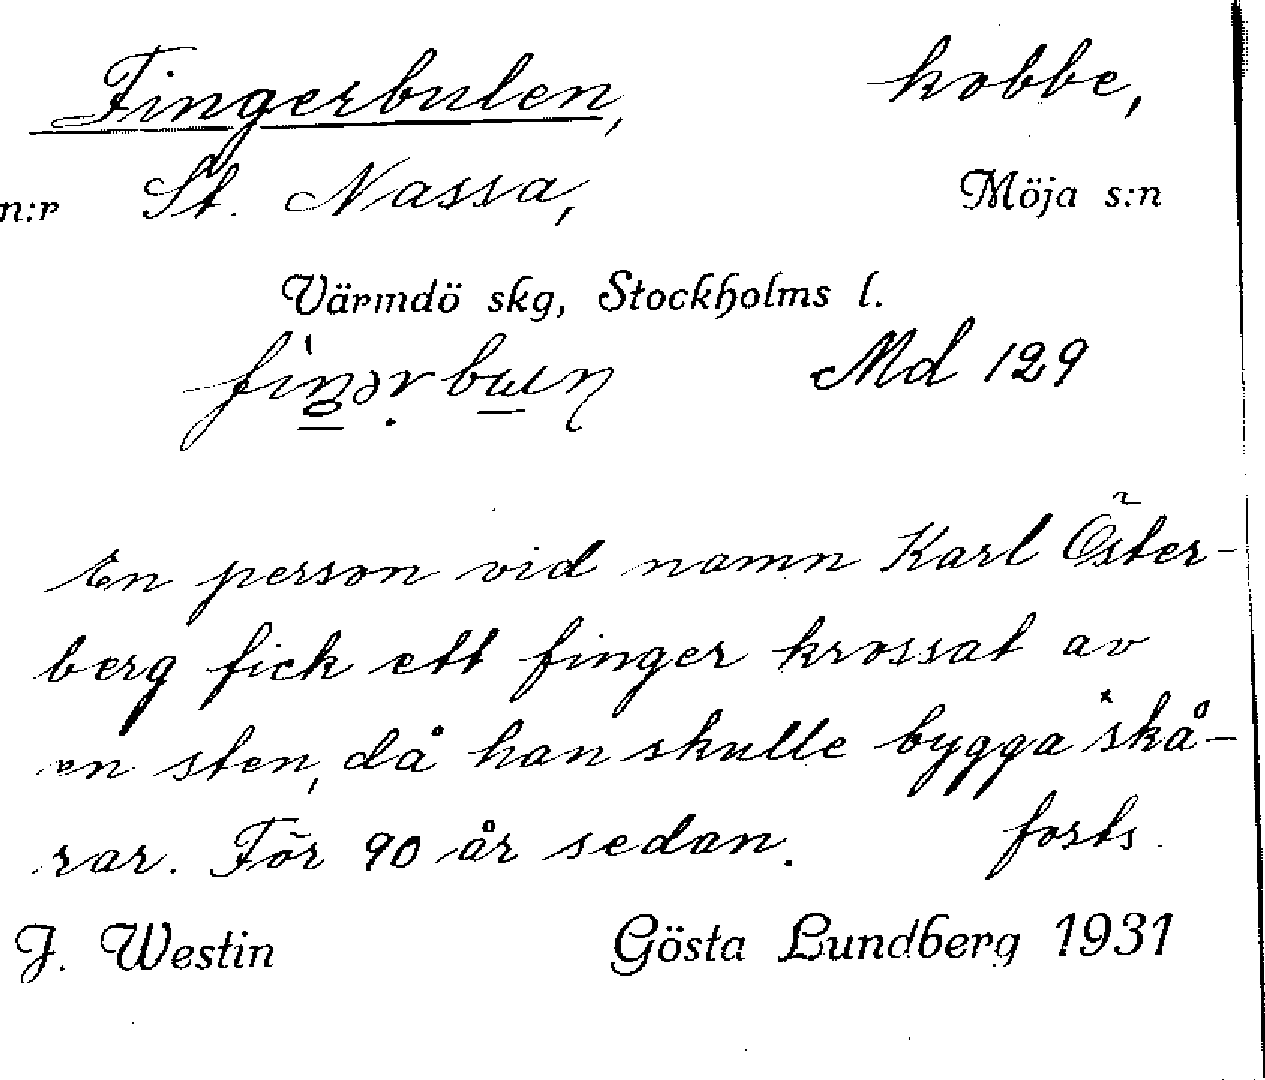 Fingerbulen, kobbe,
n:r St. Nassa, Möja s:n
Värmdö skg, Stockholms l.
Md 129
En person vid namn Karl Öster-
berg fick ett finger krossat av
en sten, då han skulle bygga skå-
rar. För 90 år sedan. forts.
J. Westin Gösta Lundberg 1931